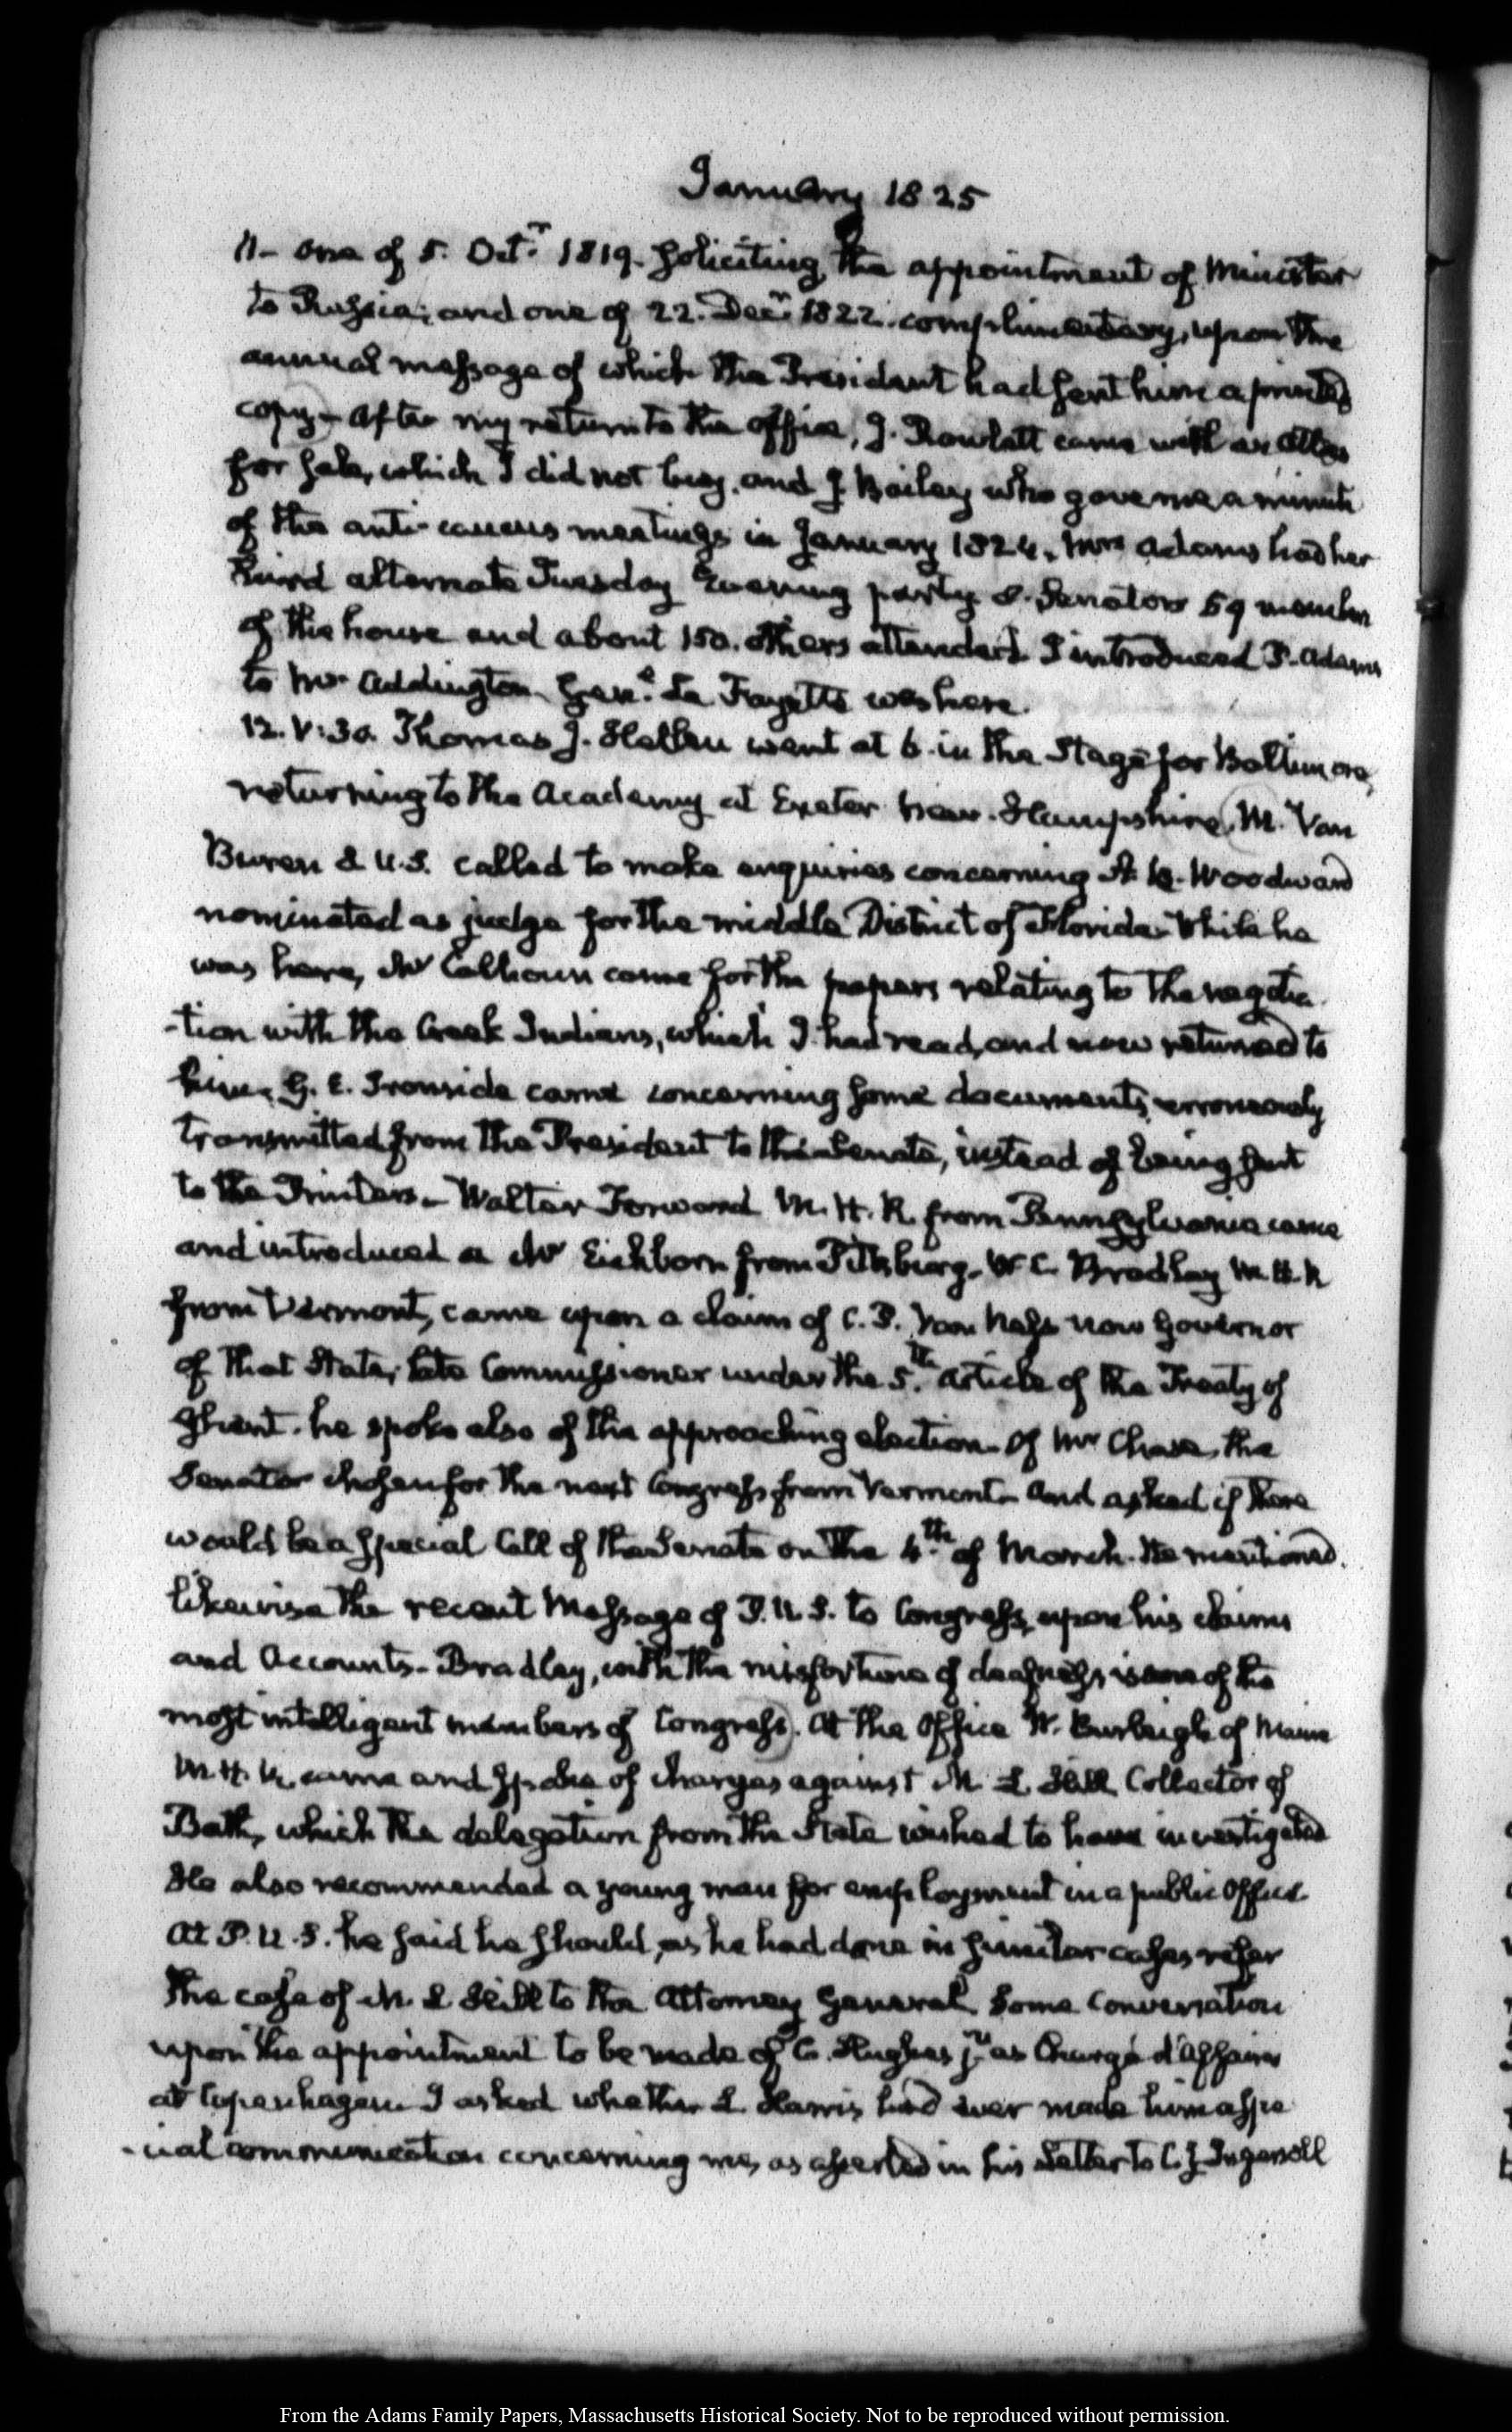 January 1825
11– one of 5. Octr. 1819. soliciting the appointment of Minister
to Russia; and one of 22. Decr. 1822. complimentary, upon the
annual message of which the President had sent him a printed
copy– After my return to the office, J. Rowlatt came with an Atlas
for sale, which I did not buy, and J. Bailey who gave me a minute
of the anti-caucus meetings in January 1824. Mrs Adams had her
third alternate Tuesday Evening party 8. Senators 59 members
of the house and about 150. others attended. I introduced P. Adams
to Mr Addington. Genl. La Fayette was here.
12. V:30. Thomas J. Hellen went at 6 in the Stage for Baltimore,
returning to the Academy at Exeter New-Hampshire. M. Van
Buren S U.S. called to make enquiries concerning A. B. Woodward
nominated as judge for the middle District of Florida. While he
was here, Mr Calhoun came for the papers relating to the negotia
-tion with the Creek Indians, which I had read, and now returned to
him. G. E. Ironside came concerning some documents, erroneously
transmitted from the President to the Senate, instead of being sent
to the Printers– Walter Forward M. H. R. from Pennsylvania came
and introduced a Mr Eichborn from Pittsburg. W. C. Bradley M. H. R
from Vermont, came upon a claim of C. P. Van Ness now Governor
of that State; late Commissioner under the 5.th Article of the Treaty of
Ghent. he spoke also of the approaching election– Of Mr Chase, the
Senator chosen for the next Congress from Vermont– And asked if there
would be a special Call of the Senate on the 4.th of March. He mentioned
likewise the recent Message of P. U. S. to Congress, upon his claims
and Accounts– Bradley, with the misfortune of deafness is one of the
most intelligent members of Congress. At the Office W. Burleigh of Maine
M. H. R. came and spoke of charges against M. L. Hill Collector of
Bath, which the delegation from the State wished to have investigated
He also recommended a young man for employment in a public Office.
At P. U. S. he said he should, as he had done in similar cases refer
the case of M. L. Hill to the Attorney General. Some conversation
upon the appointment to be made of C. Hughes jr. as Chargé d'Affaires
at Copenhagen. I asked whether L. Harris had ever made him a spe
-cial communication concerning me, as asserted in his Letter to C. J. Ingersoll
From the Adams Family Papers, Massachusetts Historical Society. Not to be reproduced without permission.